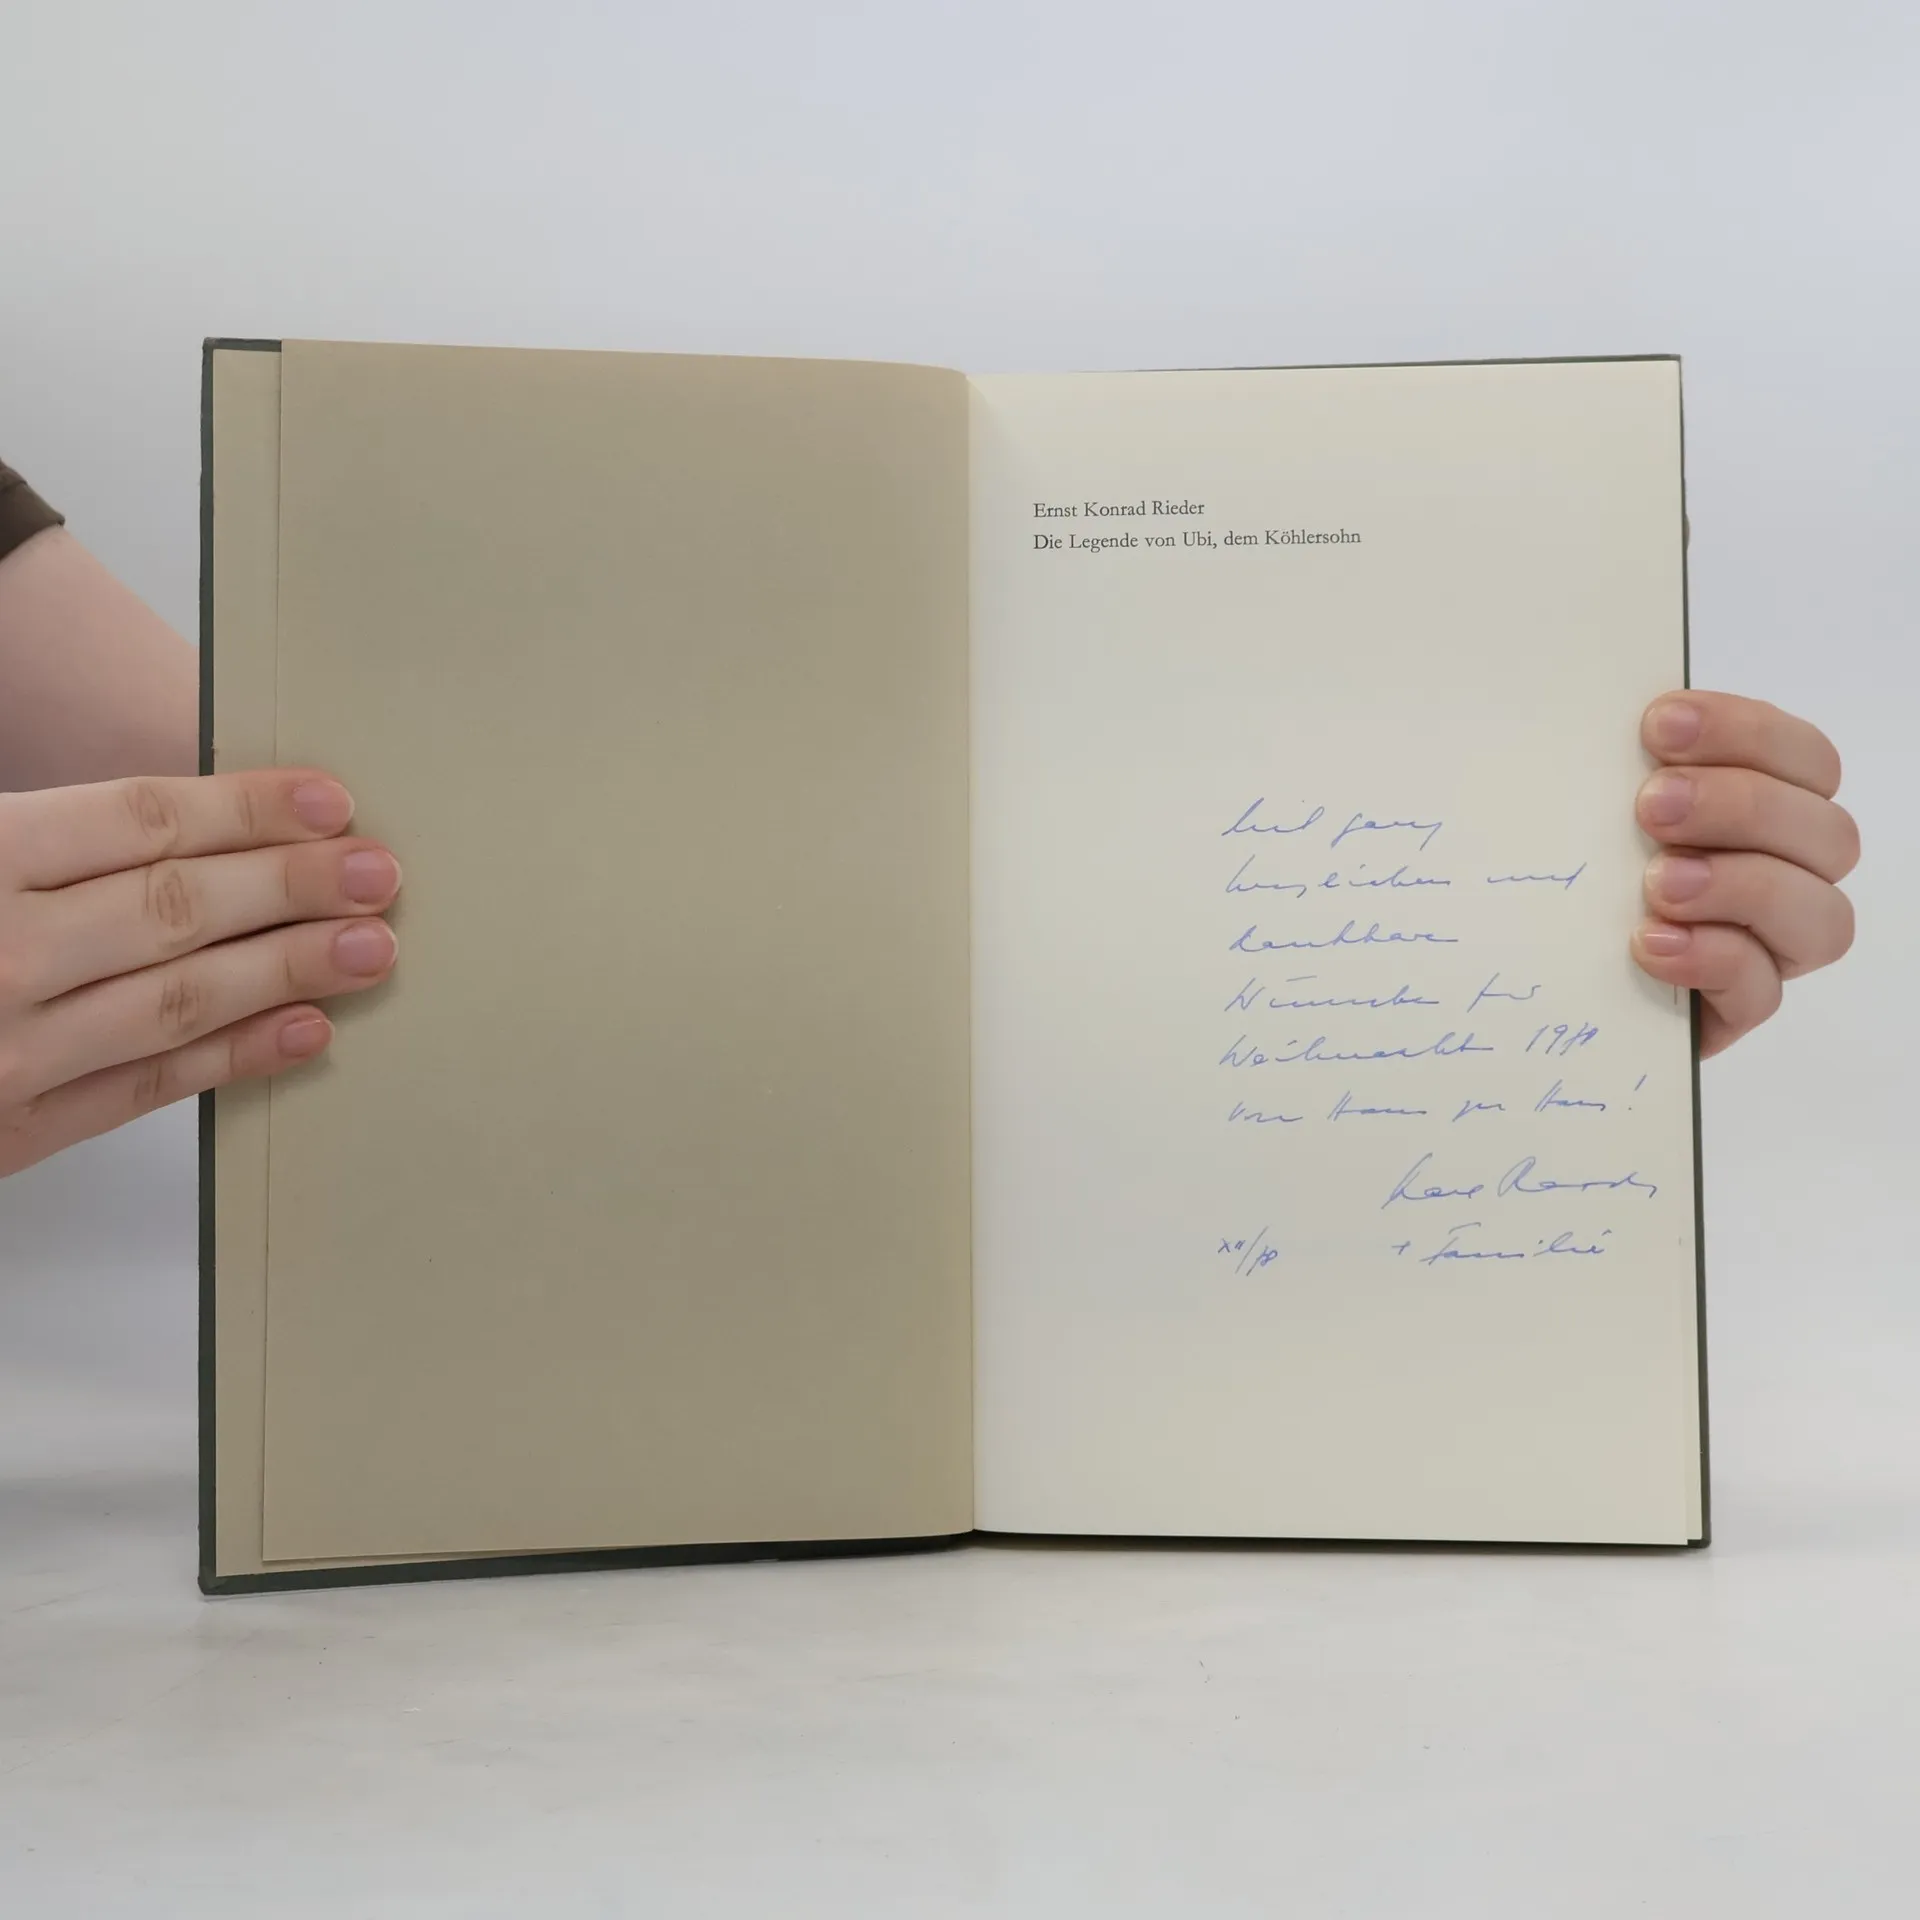 Ernst Konrad Rieder
Die Legende von Ubi, dem Köhlersohn
mit ganz
herzlichen und
dankbaren
Wünschen für
Weihnachten
von Haus zu Haus!
+ Familie